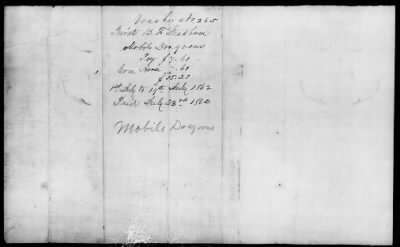 Voucher No 265
Private B. F. Stedham
Mobile Dragoons
Pay $7.60
Com. Horse 7.60
$15.20
1st July to 19th July 1862
Paid July 23rd 1862
Mobile Dragoons